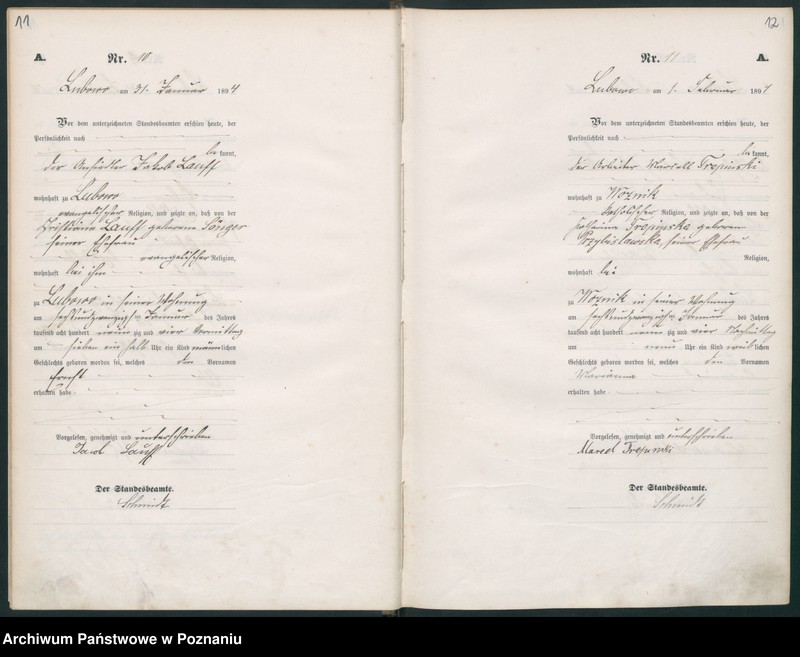 11
A.
Nr. 10
Lubowo am 31. Januar 1894
Vor dem unterzeichneten Standesbeamten erschien heute, der
Persönlichkeit nach
be kannt,
der Ansiedler Jakob Lauff
wohnhaft zu Lubowo
evangelischer Religion, und zeigte an, daß von der
Christiane Lauff geborene Sänger
seiner Ehefrau
evangelischer Religion,
wohnhaft bei ihm
zu Lubowo in seiner Wohnung
am sechsundzwanzigsten Januar des Jahres
tausend acht hundert neun zig und vier Vormittag
um sieben ein halb Uhr ein Kind männlichen
Geschlechts geboren worden sei, welches den Vornamen
erhalten habe
Vorgelesen, genehmigt und unterschrieben
Jacob Lauff
Der Standesbeamte.
Schmidt
12
Nr. 11
A.
Lubowo am 1. Februar 1894
Vor dem unterzeichneten Standesbeamten erschien heute, der
Persönlichkeit nach
be kannt,
der Arbeiter Marcell Trepinski
wohnhaft zu Woznik
katholischer Religion, und zeigte an, daß von der
Trepinska geborene
Przybislawska, seiner Ehefrau
Religion,
wohnhaft bei
zu Woznik in seiner Wohnung
am sechsundzwanzigsten Januar des Jahres
tausend acht hundert neun zig und vier Nachmittag
um neun Uhr ein Kind weiblichen
Geschlechts geboren worden sei, welches den Vornamen
Marianna
erhalten habe
Vorgelesen, genehmigt und unterschrieben
Marcel Trepinski
Der Standesbeamte.
Schmidt
Archiwum Państwowe w Poznaniu